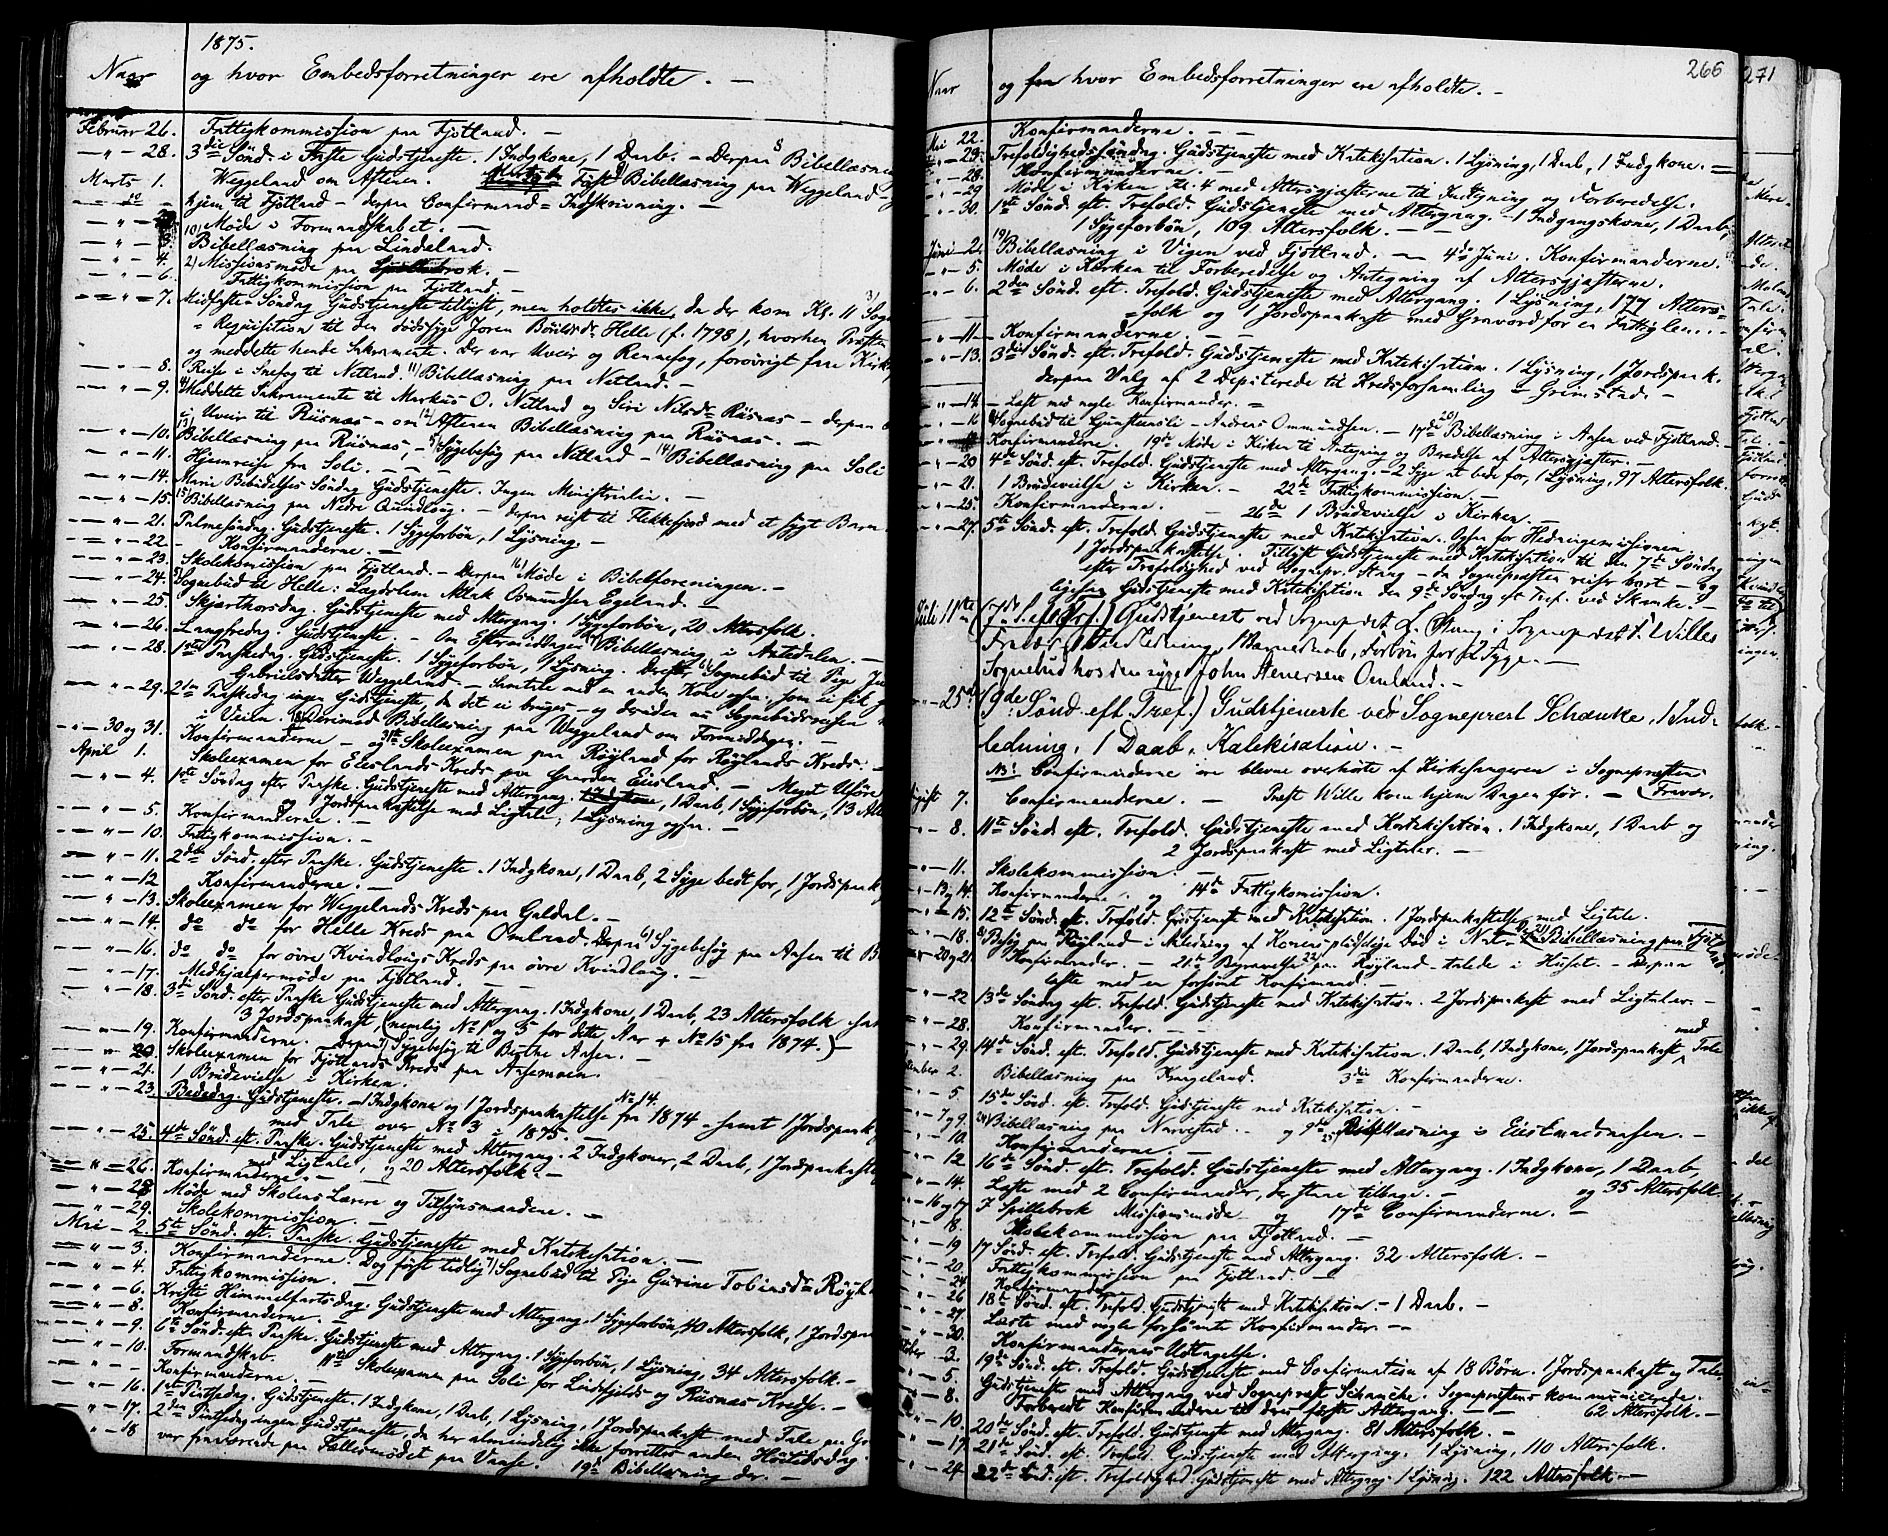 1875.
Naar og hvor Embedsforretninger ere afholdte. —
Februar 26. Fattigkommission paa Fjotland. —
— " — 28. 3die Sönd. i Faste Gudstjeneste. 1 Indgkone, 1 Daab. — Derpaa Bibellæsning
Weggeland om Aftenen.
Marts 1. Bibellæsning paa Weggeland —
— do — hjem til Fjotland — derpaa Confirmand = Indskrivning. —
— " — Möde i Formandskabet. —
— " — Bibellæsning paa Lindeland.
— " — 4. 2) Missionsmöde paa
— " — 6. Fattigkommission paa Fjotland. —
— " — 7. Midfaste Söndag Gudstjeneste tillyst, men holdtes ikke, da der kom Kl. 11 Sogne
= Requisition til den dödssyge Joren Boildsdr Helle (f. 1798), hvorhen Præsten
og meddelte hende Sakramente. Der var Uveir og Rennefog, forövrigt fra Kirke
— " — 8. Reise i Snefog til Netland. 11) Bibellæsning paa Netland. —
— " — 9. Meddelte Sakramente til Markus O. Netland og Siri Nilsdr Risnæs — derpaa
i Uveir til Risnæs — om Aftenen Bibellæsning paa Risnæs. —
— " — 10. Bibellæsning paa Risnæs, — Sygebesög paa Netland — 14) Bibellæsning paa Soli
— " — 11. Hjemreise fra Soli. —
— " — 14. Mariæ Bebudelses Söndag Gudstjeneste. Ingen Ministerialia. —
— " — 15. Bibellæsning paa Nedre Qvindlong. — derpaa reist til Flekkefjord med et sygt Barn.
— " — 21. Palmesöndag. Gudstjeneste. 1 Sygeforbön, 1 Lysning. —
— " — 22. Konfirmanderne. —
— " — 23. Skolekommission paa Fjotland. — Derpaa 16) Möde i Bibelforeningen. —
— " — 24. Sognebud til Helle: Lægdslem Atlak Osmundsen Egeland. —
— " — 25. Skjærthorsdag. Gudstjeneste med Altergang. 1 Sygeforbön, 20 Altersfolk.
— " — 26. Langfredag. Gudstjeneste. — Om Eftermiddagen Bibellæsning i Aatedalen. —
— " — 28. 1ste Paaskedag. Gudstjeneste. 1 Sygeforbön, 1 Lysning. Derefter Sognebud til Pige
Gabrielsdatter Weggeland — Samtale med en anden Kone
— " — 29. 2den Paaskedag ingen Gudstjeneste, da det ei bruges — og desuden
i Veien. Derimod Bibellæsning paa Weggeland om Formiddagen. —
— " — 30 og 31. Konfirmanderne — og 31te Skoleexamen paa Röyland for Röylands Kreds. —
April 1. Skoleexamen for Eieslands Kreds paa Gaarden Eiesland. — Meget Uföre
— " — 4. 1ste Söndag efter Paaske. Gudstjeneste med Altergang. 1 Indgkone, 1 Daab, 1 Sygeforbön, 13 Alte
og Jordspaakastelse med Ligtale, 1 Lysning ogsaa. —
— " — 5. Konfirmanderne. —
— " — 10. Fattigkommission. —
— " — 11. 2den Sönd. efter Paaske. Gudstjeneste. 1 Indgkone, 1 Daab, 2 Syge bedt for, 1 Jordspaak
— " — 12 Konfirmanderne. —
— " — 13. Skoleexamen for Weggelands Kreds paa Galdal. —
— " — 14. do do for Helle Kreds paa Omland. Derpaa 6) Sygebesög paa Aasen til B
— " — 16. do do for övre Kvindlongs Kreds paa övre Kvindlong. —
— " — 17. Medhjælpermöde paa Fjotland. —
— " — 18. 3die Sönd. efter Paaske Gudstjeneste med Altergang. 1 Indgkone, 1 Daab, 23 Altersfolk
3 Jordspaakast (nemlig No 1 og 5 for dette Aar + No 15 fra 1874.) —
— " — 19. Konfirmanderne. — Derpaa Sygebesög til Berthe Aasen. —
— " — 20. Skoleexamen for Fjotlands Kreds paa Aasemoen.
— " — 21. 1 Brudevielse i Kirken.
— " — 23. Bededag. Gudstjeneste. — 1 Indgkone og 1 Jordspaakastelse fra 1874 No 14. — samt 1 Jordspaak
med Tale over No 3 i 1875. —
— " — 25. 4de Sönd. eft. Paaske. Gudstjeneste med Altergang. 2 Indgkoner, 2 Daab, 1 Jordspaakastelse
med Ligtale, og 20 Altersfolk. —
— " — 26. Konfirmanderne. —
— " — 28 Möde med Skolens Lærere og Tilsynsmændene. —
— " — 29. Skolekommission. —
Mai — 2. 5te Sönd. eft. Paaske. Gudstjeneste med Katekisation. —
— " — 3. Konfirmanderne. Dog först tidlig Sognebud til Pige Gurine Tobiasdr Röyl
— " — 4. Fattigkommission. —
— " — 6. Kristi Himmelfartsdag. Gudstjeneste med Altergang. 1 Sygeforbön, 40 Altersfolk, 1 Jordspaa
— " — 8. Konfirmanderne. —
— " — 9. 6te Sönd. eft. Paaske. Gudstjeneste med Altergang. 1 Sygeforbön, 1 Lysning, 34 Altersfolk. —
— " — 10. Formandskab. 11te Skoleexamen paa Soli for Lindefjelds og Risnæs Kredse. —
— " — Konfirmanderne. —
— " — 16. 1ste Pintsedag. Gudstjeneste. 1 Indgkone, 1 Daab, 1 Lysning, 1 Jordspaakast med Tale paa
— " — 17. 2den Pintsedag ingen Gudstjeneste, da her almindelig ikke forrettes anden Höitidsdag.
— " — 18 var fraværende paa Fællesmödet paa Vanse. 19de Bibellæsning der. —
266
Naar og hvor Embedsforretninger ere afholdte. —
Mai 22. Konfirmanderne. —
— 23. Trefoldighedssöndag. Gudstjeneste med Katekisation. 1 Lysning, 1 Daab, 1 Indgkone. —
" — 28. Konfirmanderne. —
" — 29 Möde i Kirken Kl. 4 med Altersgjæsterne til Indtegning og Forberedelse.
" — 30. 1ste Sönd. eft. Trefold. Gudstjeneste med Altergang. — 1 Indgangskone, 1 Daab,
1 Sygeforbön, 109 Altersfolk. —
Juni — 2. 19) Bibellæsning i Vigen ved Fjotland. — 4de Juni. Konfirmanderne.
" — 5. Möde i Kirken til Forberedelse og Antegning af Altersgjæsterne.
" — 6. 2den Sönd. eft. Trefold. Gudstjeneste med Altergang. 1 Lysning, 177 Alters=
=folk og 1 Jordspaakast med Gravord for en Fattiglem. —
" — 11 — Konfirmanderne. —
" — 13. 3die Sönd. eft. Trefold. Gudstjeneste med Katekisation. 1 Lysning, 1 Jordspaak.
derpaa Valg af 2 Deputerede til Kredsforsamling — Grimstad. —
" — 14 — Læst med nogle Konfirmander. —
" — 16 Sognebud til Gunstveusli — Anders Ommundsen. — 17de 20) Bibellæsning i Aasen ved Fjotland. —
Konfirmanderne. 19de Möde i Kirken til Antegning og Beredelse af Altersgjæster. —
" — 20 4de Sönd. eft. Trefold. Gudstjeneste med Altergang. — 2 Syge at bede for, 1 Lysning, 97 Altersfolk.
" — 21. 1 Brudevielse i Kirken. — 22de Fattigkommission. —
" — 25. Konfirmanderne. — 26de 1 Brudevielse i Kirken. —
" — 27. 5te Sönd. eft. Trefold. Gudstjeneste med Katekisation. Offer for Hedningemissionen
1 Jordspaakastelse. — Tillyst Gudstjeneste med Katekisation til den 7de Söndag
efter Trefoldighed ved Sognepr. Stang — da Sognepræsten reiser bort — og
ligesaa Gudstjeneste med Katekisation den 9de Söndag eft Tref. ved Skanke. —
Juli 11te (7de S. eft Tref.) Gudstjeneste ved Sogneprest L. Stang i Sogneprest Willes
Fravær, 1 Indledning, 1 Barnedaab, Forbön for 2 Syge. —
Sognebud hos den syge John Aanensen Omland. —
" — 25de (9de Sönd eft Tref.) Gudstjeneste ved Sogneprest Schancke, 1 Ind-
ledning, 1 Daab, Katekisation. —
NB! Confirmanderne ere blevne overhörte af Kirkesangeren i Sognepræsten
Fravær.
August 7. Confirmanderne. — Præst Wille kom hjem Dagen för. —
" — 8. 11te Sönd. eft. Trefold. Gudstjeneste med Katekisation. 1 Indgkone, 1 Daab og
2 Jordspaakast med Ligtaler. —
" — 11. Skolekommission. —
" — 13 og 14. Konfirmanderne. og 14de Fattigkomission.
" — 15. 12te Sönd. eft. Trefold. Gudstjeneste med Katekisation. 1 Jordspaakastelse med Ligtale.
" — 18. Besög paa Röyland — i Anledning af Konens pludselige Död i Nat — Bibellæsning paa Fjotland
" — 20 og 21. Konfirmander. — 21de Begravelse paa Röyland — talede i Huset. — Derpaa
læste med en forsömt Konfirmand. —
" — 22 13de Söndag eft. Trefold. Gudstjeneste med Katekisation. 2 Jordspaakast med Ligtaler. —
" — 28. Konfirmander. —
" — 29. 14de Sönd. eft. Trefold. Gudstjeneste med Katekisation. 1 Daab, 1 Indgkone, 1 Jordspaakast med Tale
tember 2. Bibellæsning paa Knageland. 3die Konfirmanderne.
" — 5 15de Sönd. eft. Trefold. Gudstjeneste med Katekisation. —
" — 7 og 9. 24) Bibellæsning paa Narvestad. — og 9de 25) Bibellæsning i Eieslandsaasen. —
" — 10. Konfirmanderne. —
" — 12 16de Sönd. eft. Trefold. Gudstjeneste med Altergang. 1 Indgkone, 1 Daab,
og 35 Altersfolk.
" — 14. Læste med 2 Confirmander, der staae tilbage. —
" — 16 og 17 I Spillebrok Missionsmöde — og 17de Confirmanderne. —
" — 18. Skolekommission paa Fjotland. —
" — 19 17 Sönd. eft. Trefold. Gudstjeneste med Altergang. 32 Altersfolk. —
" — 20. Fattigkommission paa Fjotland. —
" — 24 Konfirmander
" — 26 18de Sönd. eft. Trefold. Gudstjeneste med Katekisation. — 1 Daab. —
" — 27. Læste med nogle forsömte Konfirmander. —
" — 30. Konfirmandernes Udtagelse.
ctober — 3. 19de Sönd. eft. Trefold. Gudstjeneste med Confirmation af 18 Börn. 1 Jordspaakast og Tale
" — 5. Gudstjeneste med Altergang ved Sognepræst Schancke. Sognepræstens kommunicerede.
" — 8. Forberedt Konfirmanderne til deres förste Altergang. — 62 Altersfolk. —
" — 10. 20de Sönd. eft. Trefold. Gudstjeneste med Altergang. 81 Altersfolk. —
" — 17. 21de Sönd. eft. Trefold. Gudstjeneste med Altergang. 1 Lysning, 110 Altersfolk.
" — 24. 22de Sönd. eft. Trefoldighed. Gudstjeneste med Altergang. 1 Lysning. 122 Altersfolk. —
271